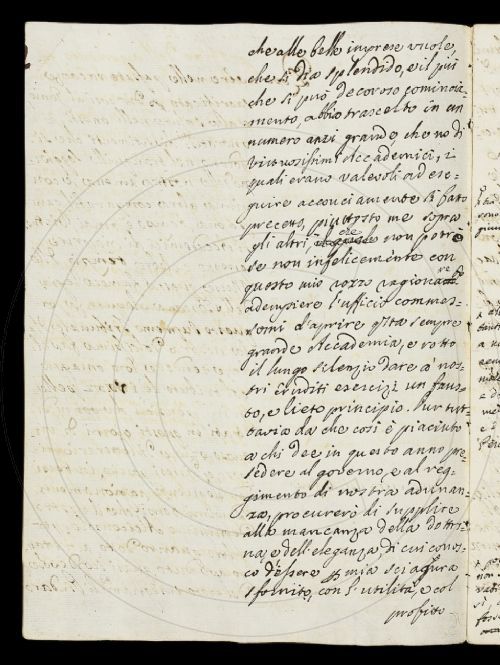 che alle belle imprese vuole,
che si dia splendido, e il più
che si può decoroso comincia-
mento, abbia trascelto in un
numero anzi grande, che no di
virtuosissimi Accademici, i
quali erano valevoli ad ese-
guire acconciamente sì fatto
precetto, piuttosto me sopra
gli altri, che non potrò
se non infelicemente con
questo mio rozzo ragionare
adempiere l'ufficio commes-
somi d'aprire qsta sempre
grande Accademia, e rotto
il lungo silenzio dare a' nos-
tri eruditi esercizi un faus-
to, e lieto principio. Pur tut-
tavia da che così è piaciuto
a chi dee in questo anno pre-
sedere al governo, e al reg-
gimento di nostra adunan-
za, procurerò di supplire
alla mancanza della dottri-
na, e dell'eleganza di cui conos-
co d'essere mia sciagura
sfornito, con l'utilità, e col
profitto